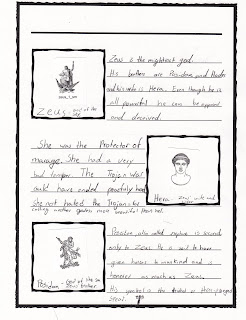 Zeus is the mightiest god.
His brothers are Poseidon and Hades
and his wife is Hera. Even though he is
all powerful he can be opposed
and deceived.
Zeus god of the
She was the Protector of
marriage. She had a very
bad temper. The Trojan War
could have ended peacefully had
she not hated the Trojans for
another more beautiful than her.
Hera Zeus' wife and
Poseidon, also called neptune is second
only to Zeus. He is said to have
given horses to mankind and is
honored as much as Zeus.
His symbol is the trident or three-pronged
spear.
Poseidon, god of the sea